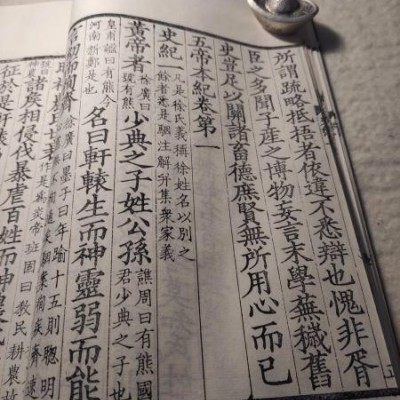 所謂疏略抵捂者依違不悉辯也愧非胥
臣之多聞子産之博物妄言末學蕪穢舊
史豈足以關諸畜德庶賢無所用心而已
五帝本紀卷第一
史紀一 凡是徐氏義稱徐姓名以別之
餘者悉是駰注解并集衆家義
黃帝者 徐廣曰
號有熊 少典之子姓公孫 譙周曰有熊國
君少典之子也
皇甫謐曰有熊今
河南新鄭是也 名曰軒轅生而神靈弱而能
徐廣曰墨子曰年踰十五則聰明
諸侯相侵伐暴虐百姓而
征於是軒